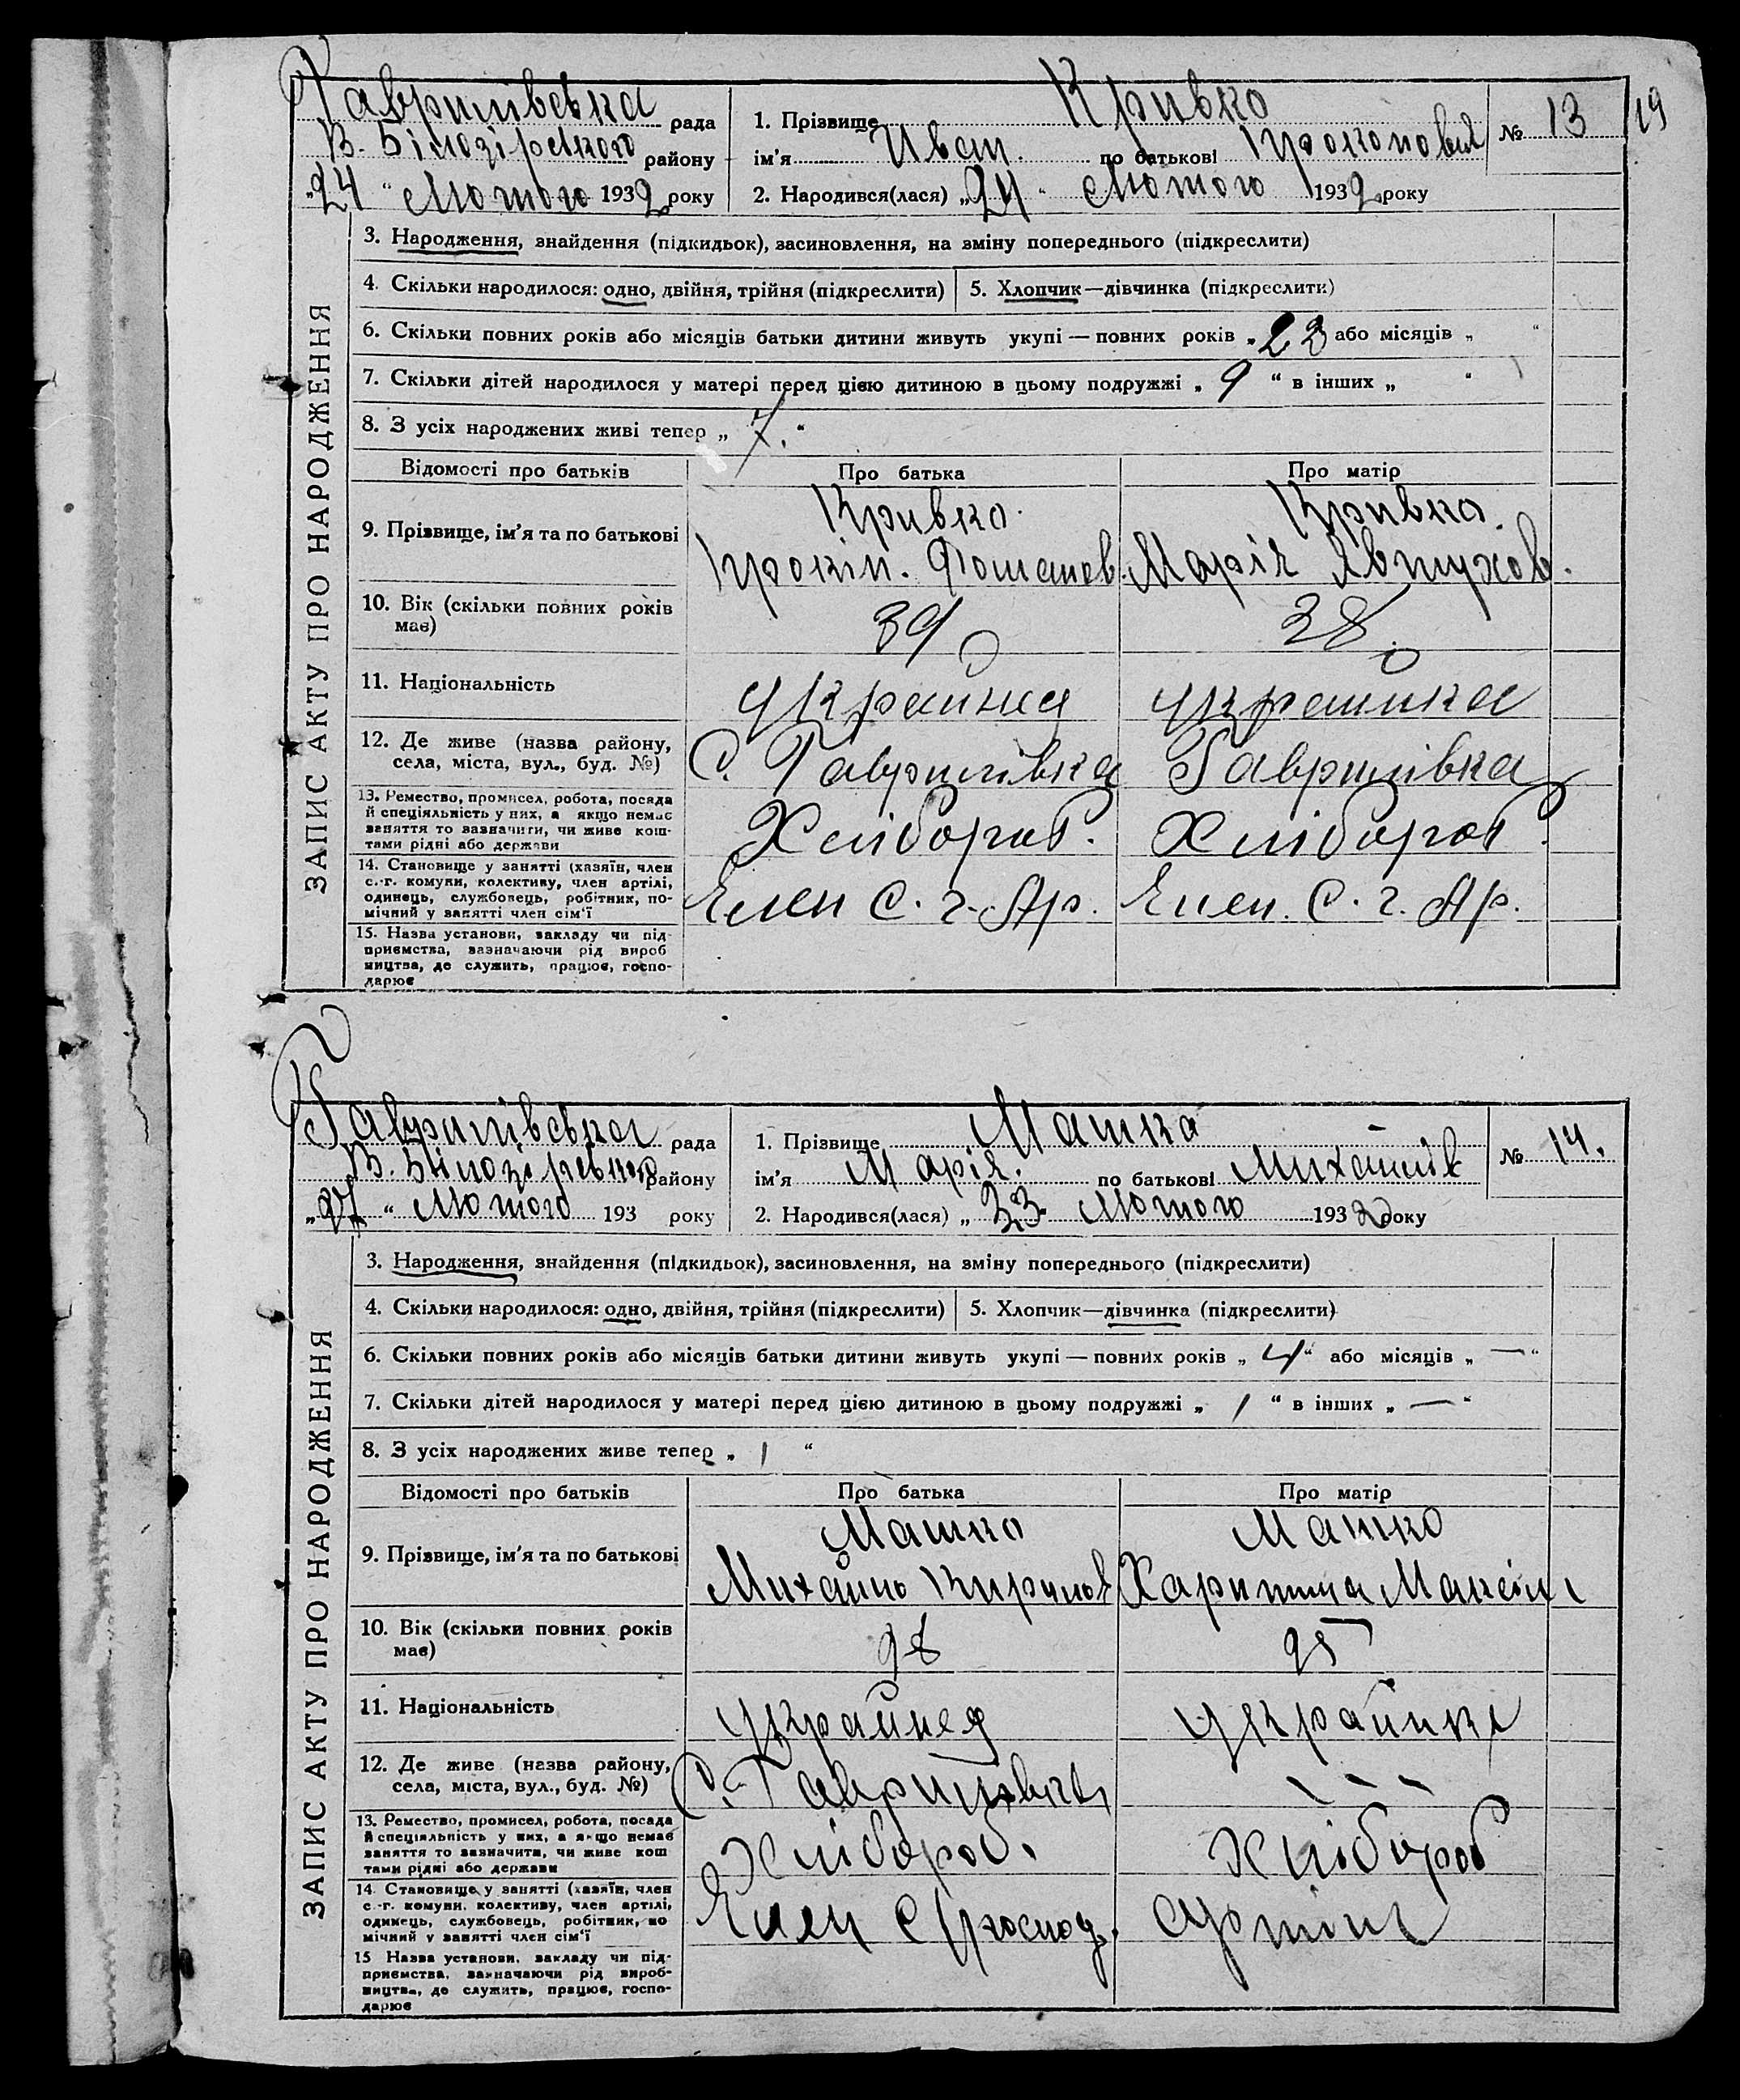 Гаврилівська рада
В. Білозірського району
„24“ Лютого 1932 року
1. Прізвище Кривко
ім'я Иван по батькові Прокопович
№ 13
19
2. Народився(лася) „24“ Лютого 1932 року
ЗАПИС АКТУ ПРО НАРОДЖЕННЯ
3. Народження, знайдення (підкидьок), засиновлення, на зміну попереднього (підкреслити)
4. Скільки народилося: одно, двійня, трійня (підкреслити)
5. Хлопчик—дівчинка (підкреслити)
6. Скільки повних років або місяців батьки дитини живуть укупі — повних років „23 або місяців „ “
7. Скільки дітей народилося у матері перед цією дитиною в цьому подружжі „ 9 “ в інших „ “
8. З усіх народжених живі тепер „ 7. “
Відомості про батьків
Про батька
Про матір
9. Прізвище, ім'я та по батькові
Кривко.
Прокіп.
Кривко.
Марія Явтухов.
10. Вік (скільки повних років
має)
39
38
11. Національність
українец
українка
12. Де живе (назва району,
села, міста, вул., буд. №)
С. Гаврилівка
Гаврилівка
13. Ремество, промисел, робота, посада
й спеціяльність у них, а якщо немає
заняття то зазначити, чи живе кош-
тами рідні або держави
Хлібороб.
Хлібороб.
14. Становище у занятті (хазяїн, член
с.-г. комуни, колективу, член артілі,
одинець, службовець, робітник, по-
мічний у занятті член сім'ї
Член С. г. Ар.
Член. С. г. Ар.
15. Назва установи, закладу чи під-
приємства, зазначаючи рід вироб
ництва, де служить, працює, госпо-
дарює
Гаврилівська рада
В. Білозірського району
„27“ Лютого 193 року
1. Прізвище Машка
ім'я Марія. по батькові Михайлів
№ 14.
2. Народився(лася) „ 23. Лютого 1932 року
ЗАПИС АКТУ ПРО НАРОДЖЕННЯ
3. Народження, знайдення (підкидьок), засиновлення, на зміну попереднього (підкреслити)
4. Скільки народилося: одно, двійня, трійня (підкреслити)
5. Хлопчик—дівчинка (підкреслити)
6. Скільки повних років або місяців батьки дитини живуть укупі — повних років „ 4 “ або місяців „ — “
7. Скільки дітей народилося у матері перед цією дитиною в цьому подружжі „ 1 “ в інших „ — “
8. З усіх народжених живе тепер „ 1 “
Відомості про батьків
Про батька
Про матір
9. Прізвище, ім'я та по батькові
Машко
Михайло Кирилов
Машко
Харитина Максім
10. Вік (скільки повних років
має)
28
25
11. Національність
українец
українка
12. Де живе (назва району,
села, міста, вул., буд. №)
С. Гаврилівка
13. Ремество, промисел, робота, посада
й спеціяльність у них, а якщо немає
заняття то зазначити, чи живе кош
тами рідні або держави
Хлібороб.
Хлібороб
14. Становище у занятті (хазяїн, член
с.-г. комуни, колективу, член артілі,
одинець, службовець, робітник, по
мічний у занятті член сім'ї
Член с
артілі
15 Назва установи, закладу чи під-
приємства, зазначаючи рід вироб-
ництва, де служить, працює, госпо-
дарює